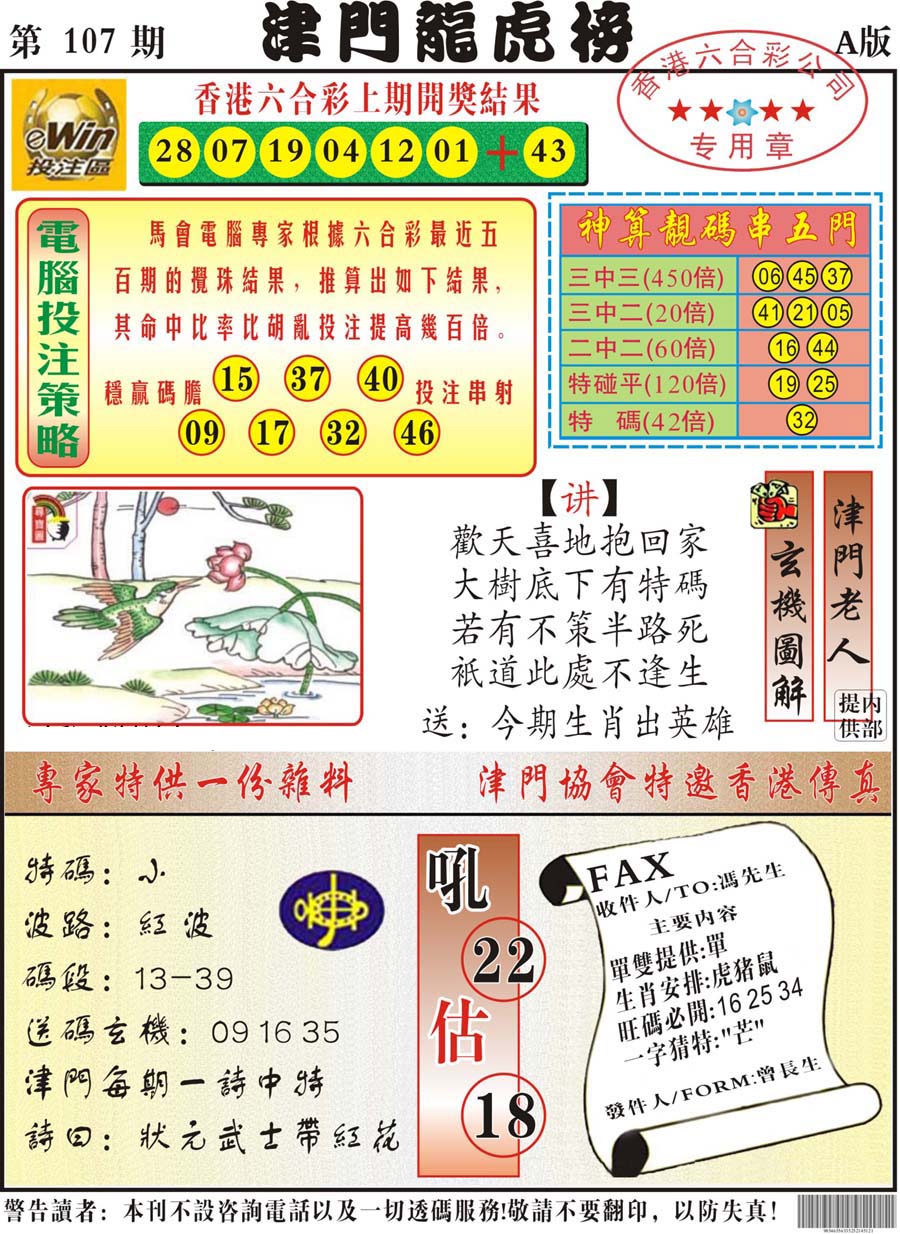 第 107 期
津門龍虎榜
A版
香港六合彩公司
专用章
eWin
投注區
香港六合彩上期開獎結果
28 07 19 04 12 01 + 43
電腦投注策略
馬會電腦專家根據六合彩最近五
百期的攪珠結果，推算出如下結果，
其命中比率比胡亂投注提高幾百倍。
穩贏碼膽 15 37 40 投注串射
09 17 32 46
神算靚碼串五門
三中三(450倍) 06 45 37
三中二(20倍) 41 21 05
二中二(60倍) 16 44
特碰平(120倍) 19 25
特 碼(42倍) 32
尋寶圖
【讲】
歡天喜地抱回家
大樹底下有特碼
若有不策半路死
衹道此處不逢生
送：今期生肖出英雄
玄機圖解
津門老人
提供
内部
專家特供一份雜料
津門協會特邀香港傳真
特碼：小
波路：紅波
碼段：13-39
送碼玄機：09 16 35
津門每期一詩中特
詩曰：狀元武士帶紅花
吼
22
估
18
FAX
收件人/TO:馮先生
主要内容
單雙提供:單
生肖安排:虎猪鼠
旺碼必開:16 25 34
一字猜特:"芒"
發件人/FORM:曾長生
警告讀者：本刊不設咨詢電話以及一切透碼服務!敬請不要翻印，以防失真！